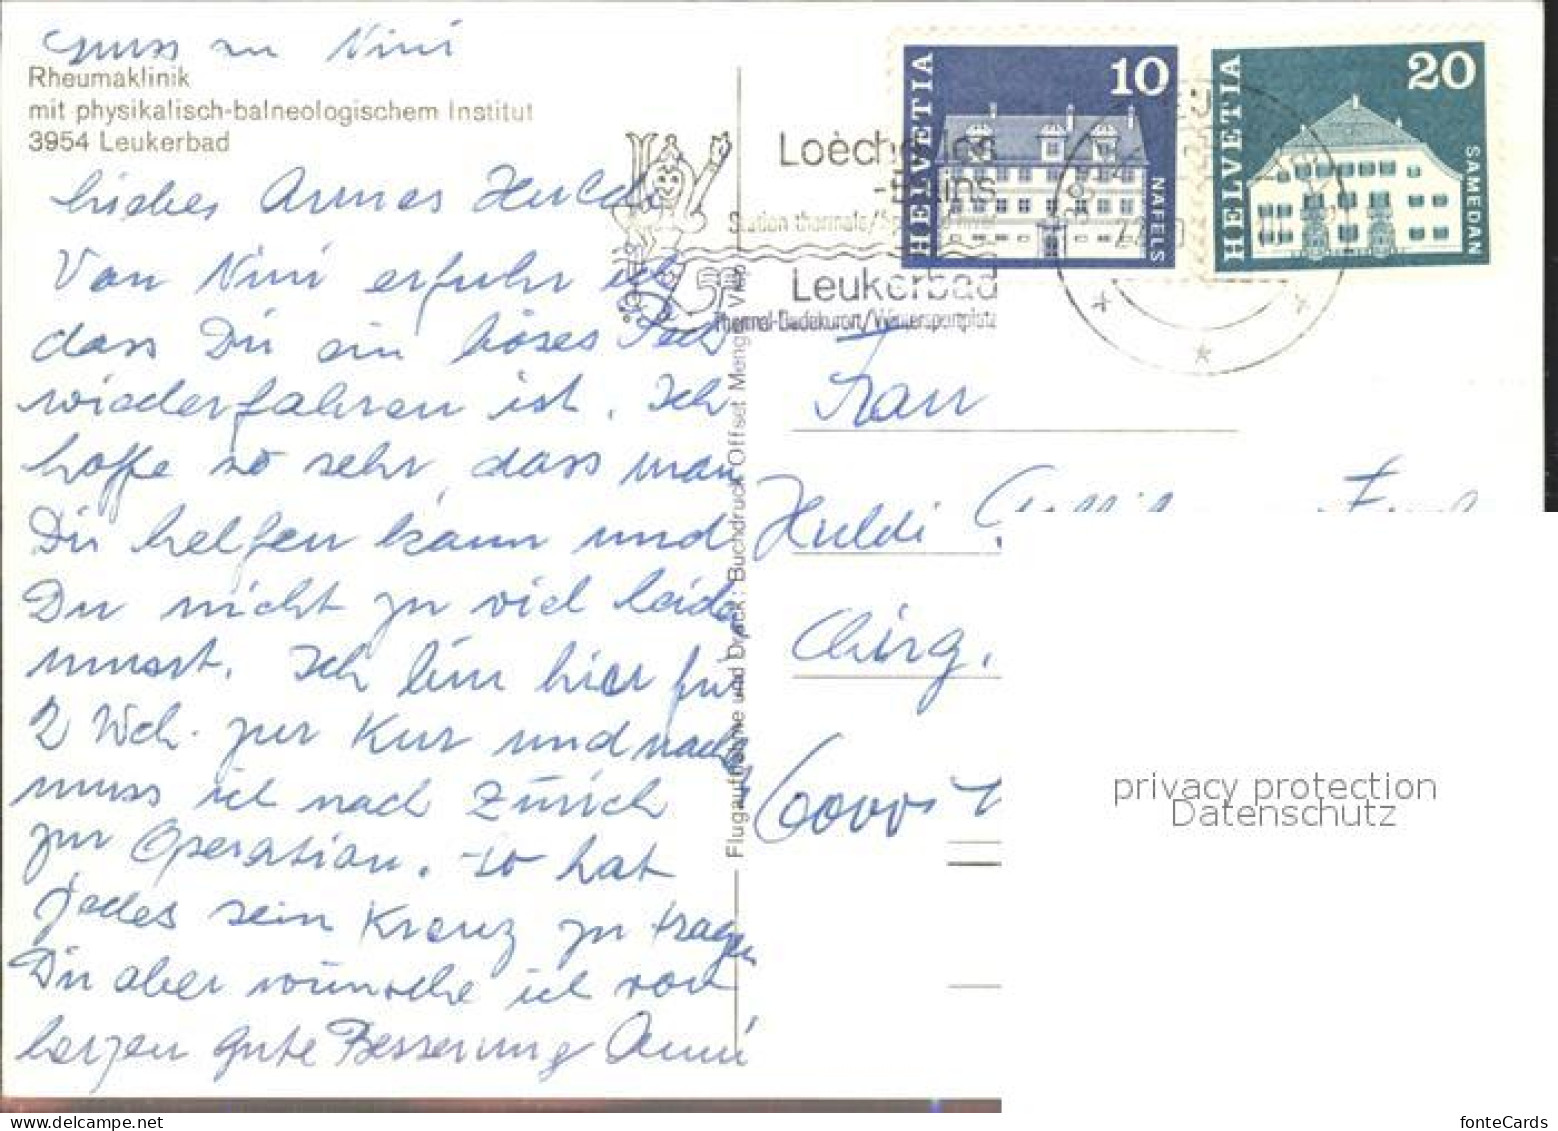 Gruss an Nini
Rheumaklinik
mit physikalisch-balneologischem Institut
3954 Leukerbad
Liebes Armes Huldi
Von Nini erfuhr ich
dass Dir ein böses Pech
wiederfahren ist. Ich
hoffe so sehr, dass man
Dir helfen kann und
Du nicht zu viel leiden
musst. Ich bin hier für
2 Wch. zur Kur und nachher
muss ich nach Zürich
zur Operation. So hat
jedes sein Kreuz zu tragen
Dir aber wünsche ich von
herzen gute Besserung Anni
Flugaufnahme und Druck: Buchdruck Offset Mengis Visp
Loèche-les
-Bains
Station thermale/
Leukerbad
Thermal-Badekurort/Wintersportplatz
HELVETIA
10
NÄFELS
HELVETIA
20
SAMEDAN
Frau
Huldi
Chirg.
6000
privacy protection
Datenschutz
fonteCards